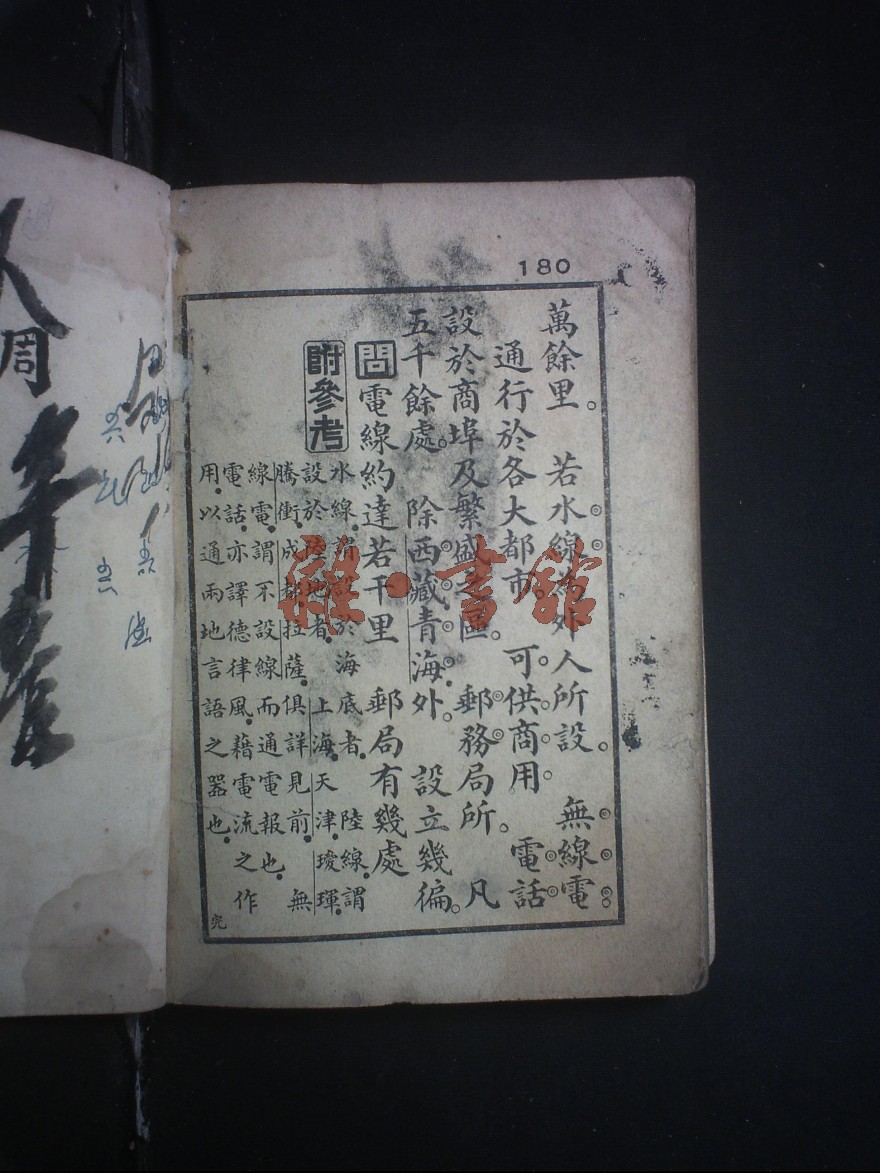 180
萬餘里。若水線為外人所設。無線電
通行於各大都市。可供商用。電話
設於商埠及繁盛之區。郵務局所。凡
五千餘處。除西藏青海外。設立幾徧。
問電線約達若干里 郵局有幾處
附參考
水線。謂設於海底者。陸線。謂
設於陸地者。上海。天津。璦琿。
騰衝。成都。拉薩。俱詳見前。無
線電。謂不設線而通電報也。
電話。亦譯德律風。藉電流之作
用。以通兩地言語之器也。
完
雜·書館
周
年